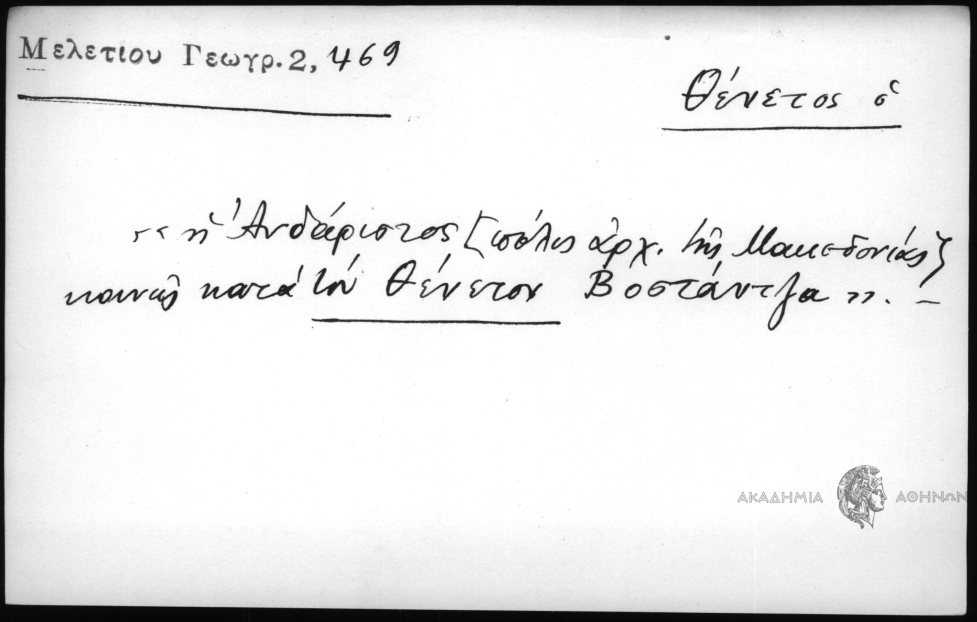 Μελετίου Γεωγρ. 2, 469
Θένετος ὁ
«ἡ Ἀνδάριστος [πόλις ἀρχ. τῆς Μακεδονίας]
κοινῶς κατὰ τὸν Θένετον Βοστάντζα». –
ΑΚΑΔΗΜΙΑ ΑΘΗΝΩΝ